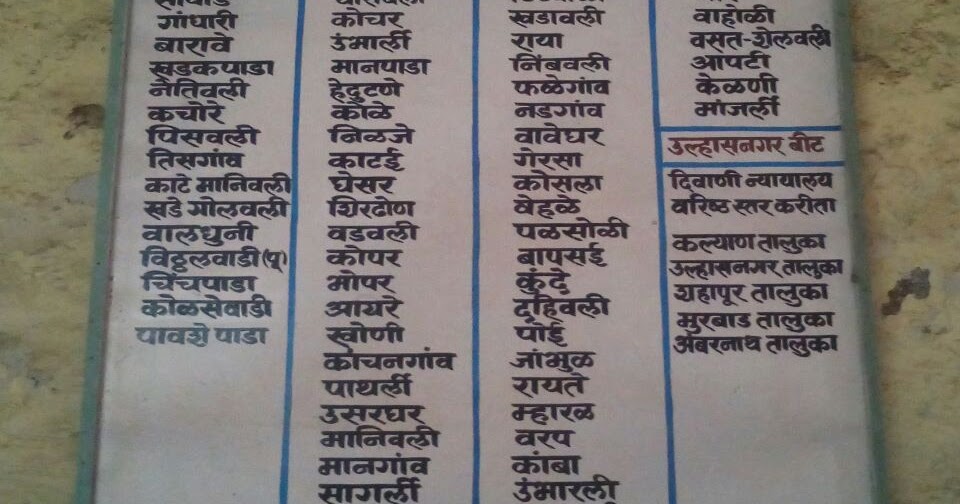 गांधारी
बारावे
खडकपाडा
नेतिवली
कचोरे
पिसवली
तिसगांव
काटे मानिवली
खडे गोलवली
वालधुनी
विठ्ठलवाडी (पू)
चिंचपाडा
कोळसेवाडी
पावशे पाडा
कोचर
उंभार्ली
मानपाडा
हेदुटणे
कोळे
निळजे
काटई
घेसर
शिरढोण
वडवली
कोपर
भोपर
आयरे
खोणी
कोचनगांव
पाथर्ली
उसरघर
मानिवली
मानगांव
सागर्ली
खडावली
राया
निंबवली
फळेगांव
नडगांव
वावेघर
गेरसा
कोसला
वेहळे
पळसोळी
बापसई
कुंदे
दहिवली
पोई
जांभुळ
रायते
म्हारळ
वरप
कांबा
उंभारली
वाहोळी
वसत-शेलवली
आपटी
केळणी
मांजर्ली
उल्हासनगर बीट
दिवाणी न्यायालय
वरिष्ठ स्तर करीता
कल्याण तालुका
उल्हासनगर तालुका
शहापूर तालुका
मुरबाड तालुका
अंबरनाथ तालुका